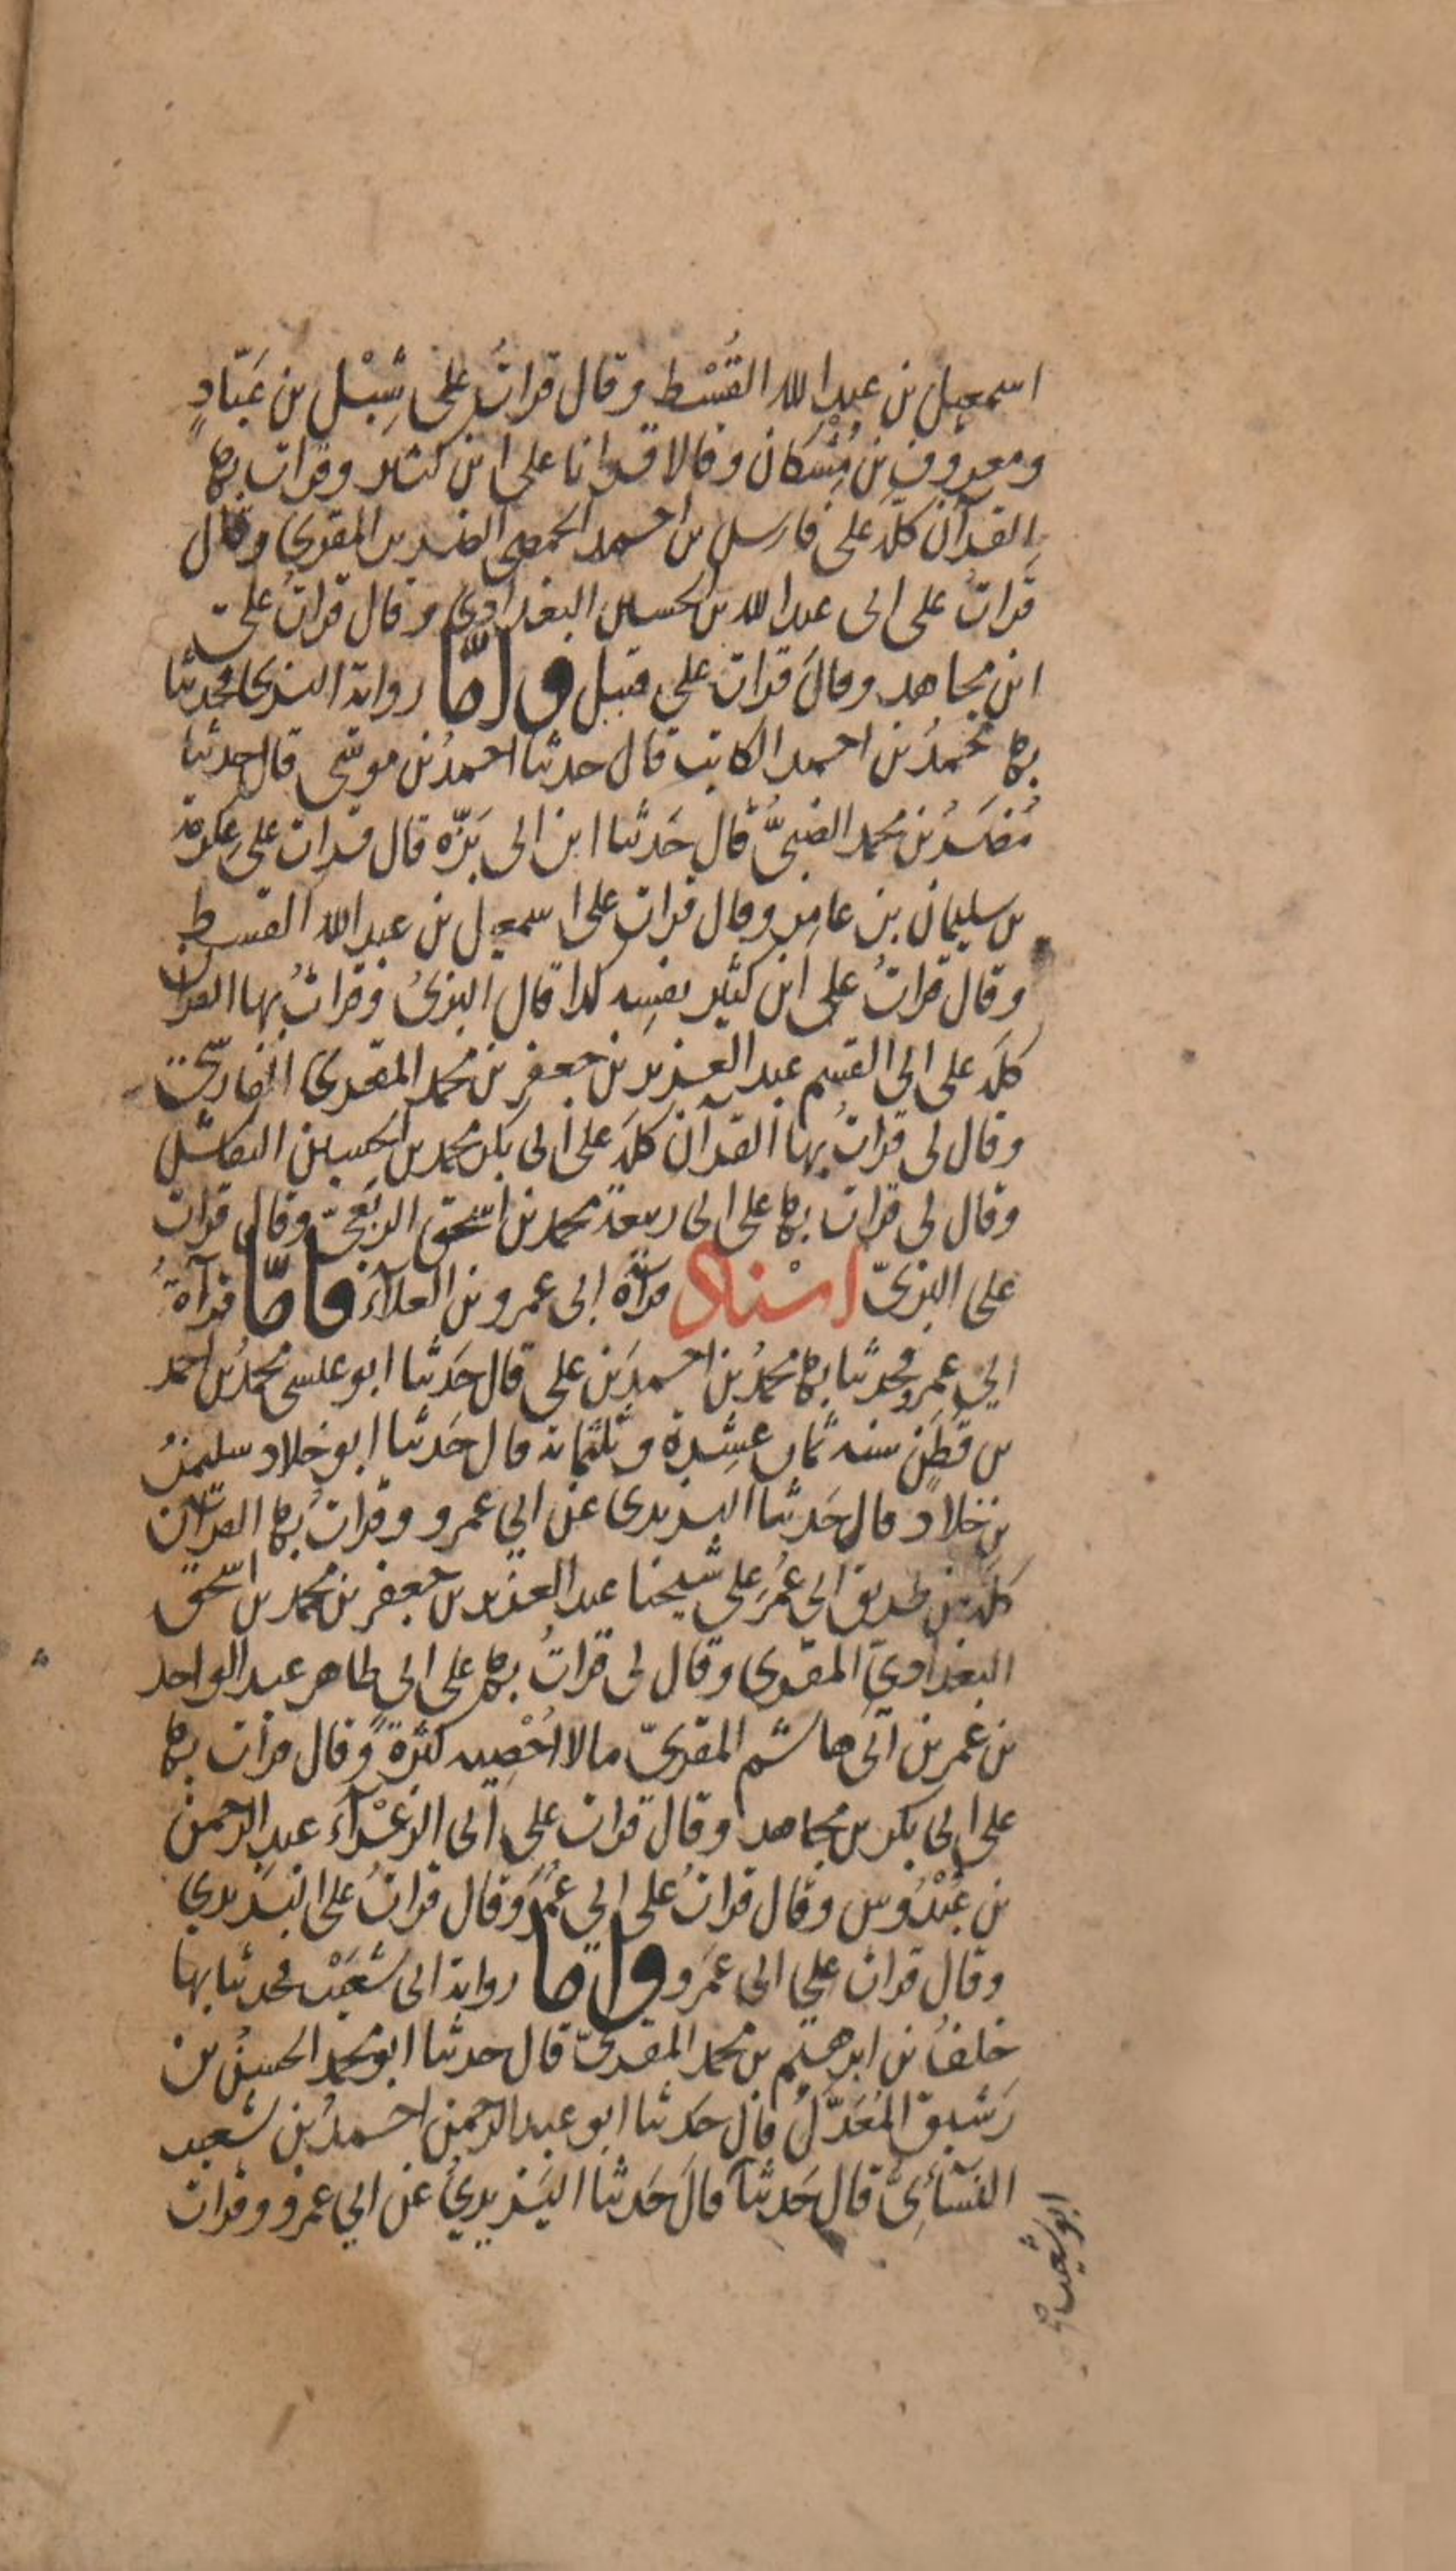 اسمعيل بن عبد الله القُسْط وقال قرات على شِبْل بن عَبّادٍ
ومعروف بن مُشْكان وقالا قرانا على ابن كثير وقرات بها
القرآن كلّه على فارس بن احمد الحمصي الضرير المقري وقال
قَراتُ على ابى عبد الله بن الحسين البغدادي وقال قراتُ على
ابن مجاهد وقالَ قرات على قنبل واَمّا رواية البزى فحدثنا
بها محمدُ بن احمد الكاتب قال حدثنا احمدُ بن موسى قال حدثنا
مُضَرُ بن محمد الضبىُّ قال حَدثنا ابن ابى بَزّه قال قرات على عِكرِمة
بن سليمان بن عامِر وقال قرات على اسمعيل بن عبد الله القسط
وقال قراتُ على ابن كثير نفسِه كذا قال البزىُ وقراتُ بها القرآن
كلَه على ابى القسم عبد العزيز بن جعفر بن محمد المقرى الفارسىّ
وقال لى قراتُ بها القرآن كلَه على ابى بكر محمد بن الحسين النقاش
وقال لى قرات بها على ابى ربيعة محمد بن اسحق الربَعىّ وقال قرات
على البزىّ اسْناد قرآة ابى عمرو بن العلآء فامّا قرآةُ
ابي عمرو فحدثنا بها محمدُ بن احمدَ بن على قال حَدثنا ابو عيسى محمدُ بن احمد
بن قَطَنٍ سنه ثمان عشِرة وثلثمائة قال حَدثنا ابو خلاد سليمنُ
بن خلاد قال حَدثنا اليزيدى عن ابي عمرو وقراتُ بها القرآن
كلَه من طريق ابي عُمَر على شيخنا عبد العزيز بن جعفر بن محمد بن اسحق
البغداديّ المقرى وقال لى قراتُ بها على ابى طاهر عبد الواحد
بن عمر بن ابى هاشم المقرىّ مالا اُحْصِيه كثرةً وقال قرأت بها
على ابى بكر بن مجاهد وقال قرات على ابى الزعْرآءِ عبد الرحمن
بن عَبْدُوس وقال قراتُ على ابي عُمَرَ وقال قراتُ على اليَزيدي
وقال قرات على ابى عَمرو واَمّا رواية ابى شُعَيْب فحدثنا بها
خلفُ بن ابرهيم بن محمد المقرىّ قال حدثنا ابو محمد الحسنُ بن
رَشيق المُعَدَّلُ قال حَدثنا ابو عبد الرحمن احمدُ بن شعيب
النسَآئىُّ قال حَدثنآ قالَ حَدثنا اليَزيديُ عن ابي عمرو وقرات
ابو شعيب